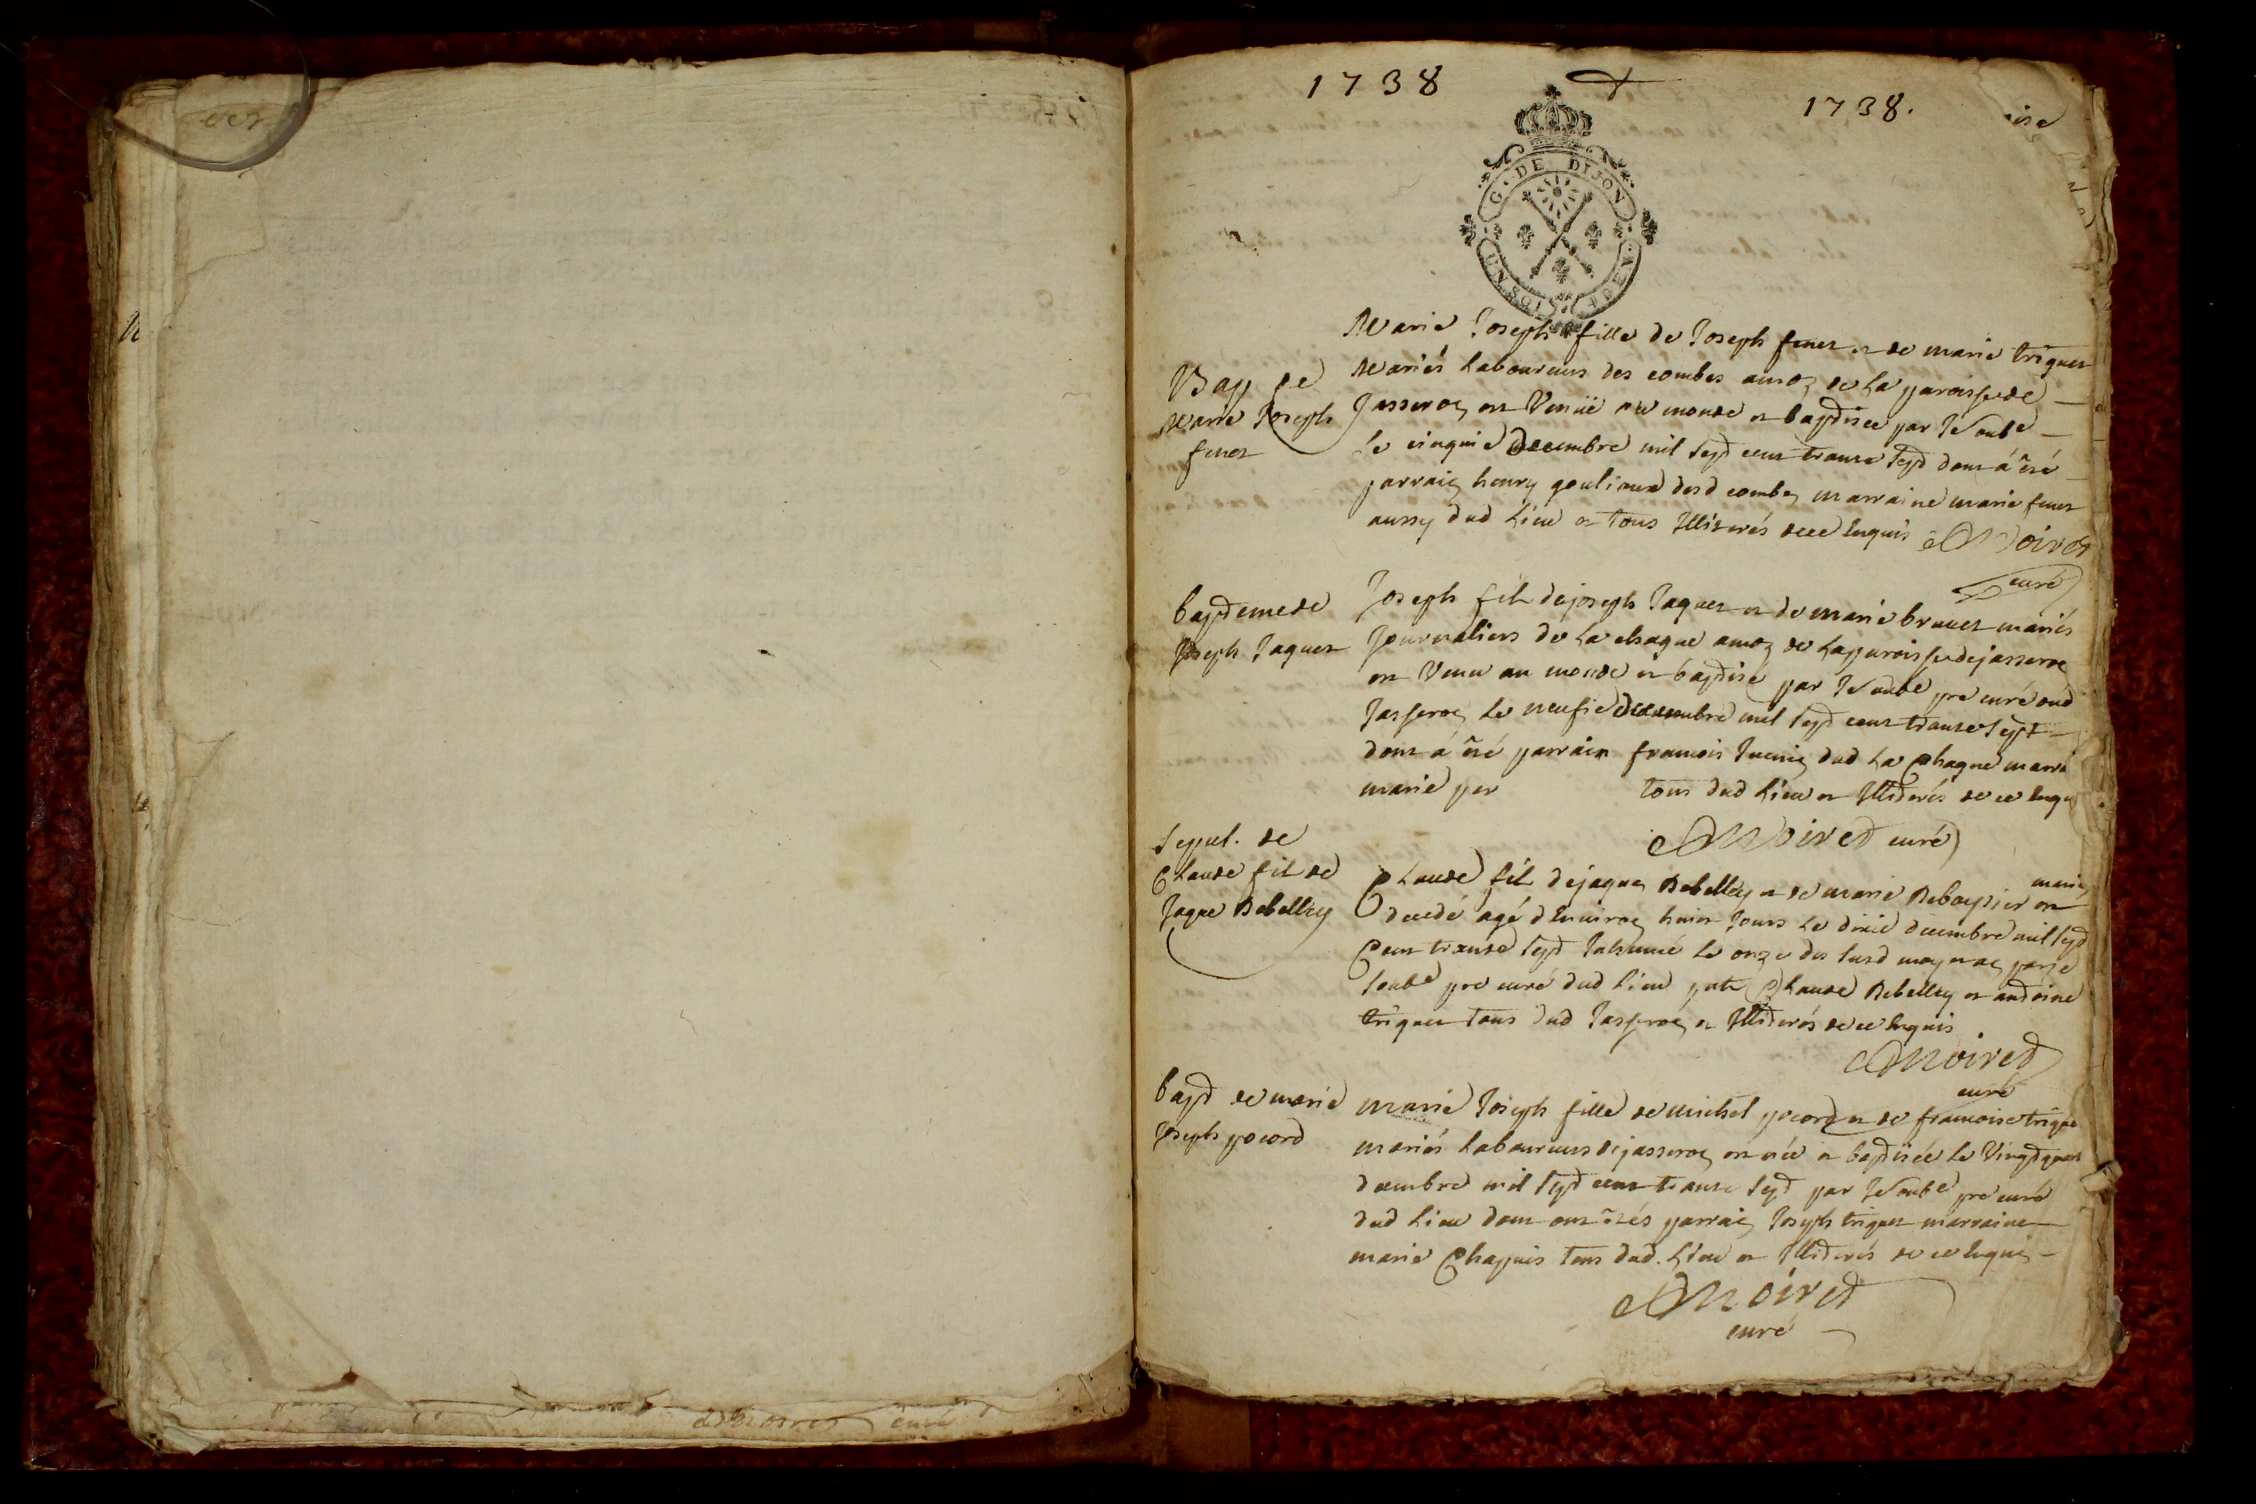 1738
1738.
G. DE DIJON
UN SOL
Marie Joseph fille de Joseph feuet et de marie triquet
Bap de
Mariés Laboureurs des combes annex de La paroisse de
Marie Joseph
Jasseron est Venüe au monde et baptisee par Je soubé
feuet
Le cinquie decembre mil sept cent trante sept dont á été
parrain henry gouliaud desd combes marraine marie feuet
aussy dud Lieu et tous Illiterés de ce Enquis Moiret
curé
baptemede
Joseph fils dejoseph Jaquet et de marie brauet mariés
Joseph Jaquet
Journaliers de La chaque annex de Laparoisse dejasseron
est Venu au monde et baptisé par Je soubé pre curé dud
Jasseron Le neufie decembre mil sept cent trante sept
dont á été parrain francois dud La Chaque marra
marie per tous dud Lieu et Illiterés de ce Enqu
Moiret curé
Sepul. de
Claude fils de
Jaque Rebelley
mariés
Claude fils dejaques Rebelley et de marie est
decedé agé d'Environ huit Jours Le dixie decembre mil sept
Cent trante sept Inhumé Le onze des susd moy et an parje
soubé pre curé dud Lieu pnts Claude Rebelley et antoine
triquet tous dud Jasseron et Illiterés de ce Enquis
Moiret
curé
bapt de marie
Joseph pocord
marie Joseph fille de michel pocord et de francoise trique
mariés Laboureurs dejasseron est née et baptisée Le Vingtquatr
decembre mil sept cent trante sept par Je soubé pre curé
dud Lieu dont ont étés parrain Joseph triquet marraine
marie Chapuis tous dud. Lieu et Illiterés de ce Enquis
Moiret
curé